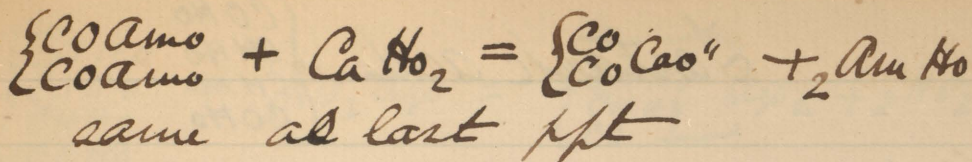 {COAmo
{COAmo + CaHo₂ = {CO
{CO Cao" + ₂AmHo
same as last ppt